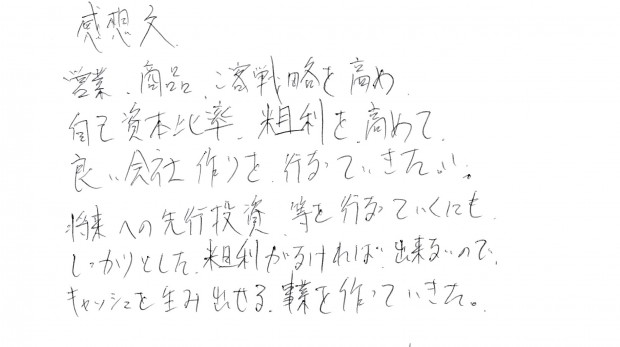 感想文
営業、商品、客戦略を高め
自己資本比率、粗利を、高めて
良い会社作りを、行なっていきたい。
将来への先行投資、等を行なっていくにも
しっかりとした、粗利がなければ、出来ないので、
キャッシュを生み出せる、事業を作っていきた。